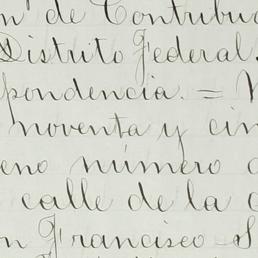 n de Contribuc
Distrito Federal.
pondencia. = N
noventa y cin
eno número
calle de la
n Francisco S